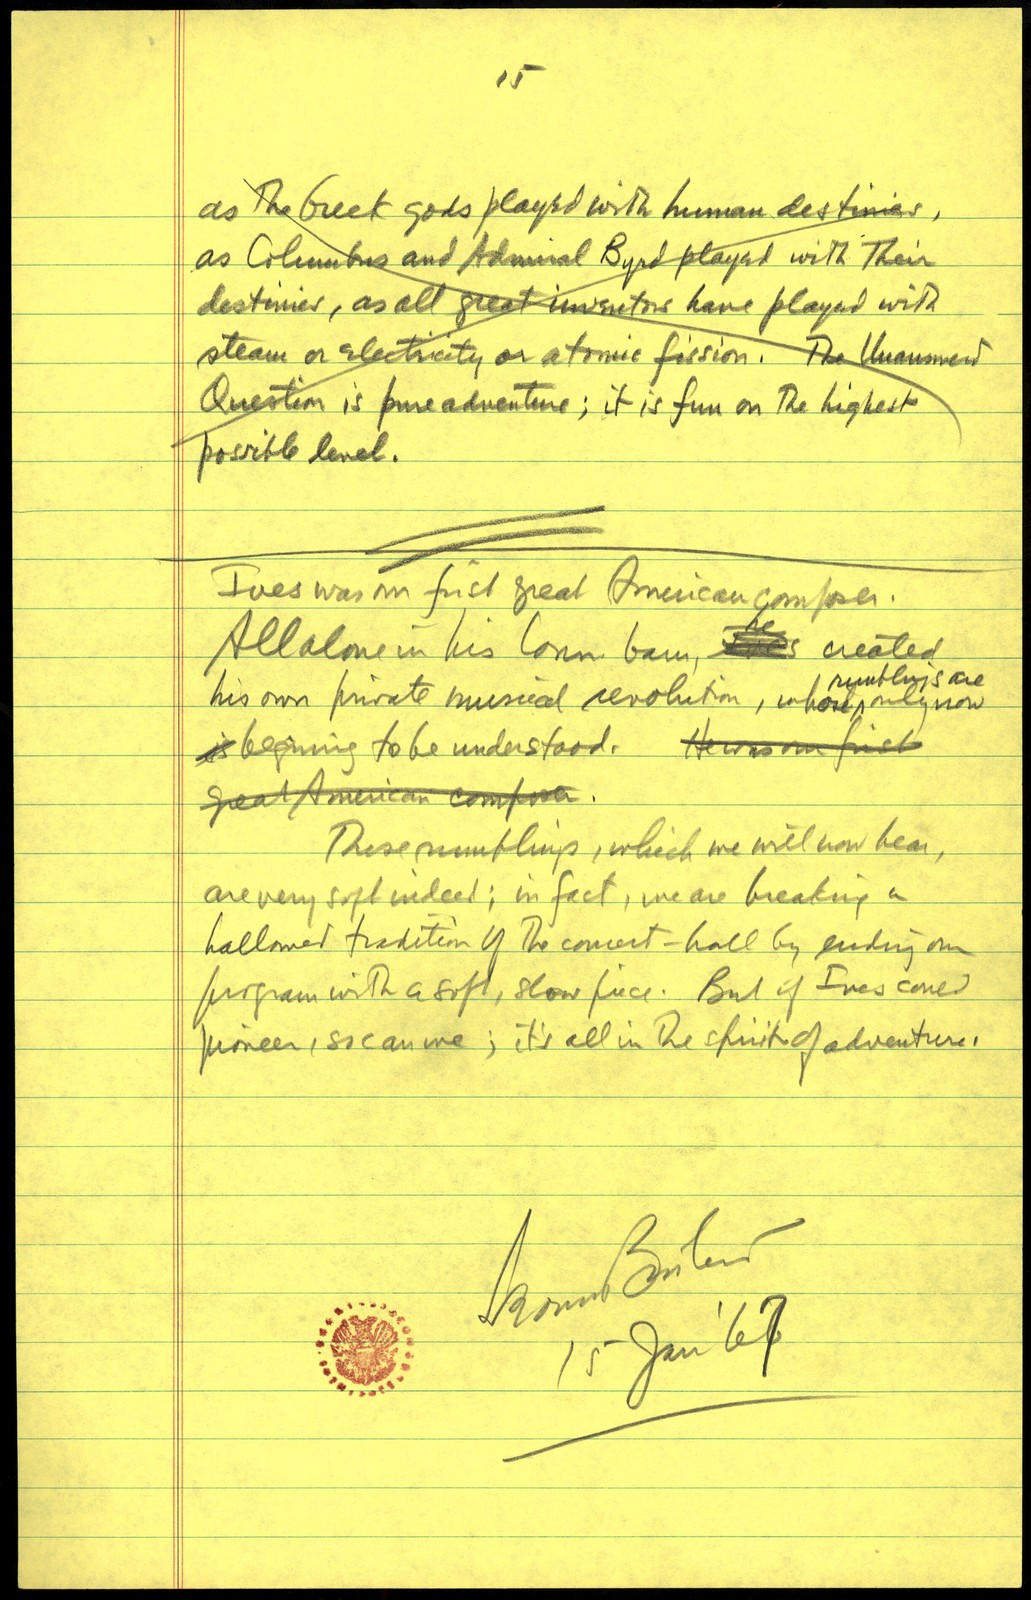 15
as the Greek gods played with human destinies,
as Columbus and Admiral Byrd played with their
destinies, as all great inventors have played with
steam or electricity or atomic fission. The Unanswered
Question is pure adventure; it is fun on the highest
possible level.
Ives was our first great American composer.
All alone in his Conn. barn, Ives he created
his own private musical revolution, whose rumblings are only now
is beginning to be understood. He was our first
great American composer.
These rumblings, which we will now hear,
are very soft indeed; in fact, we are breaking a
hallowed tradition of the concert-hall by ending our
program with a soft, slow piece. But if Ives could
pioneer, so can we; it's all in the spirit of adventure.
Leonard Bernstein
15 Jan '67